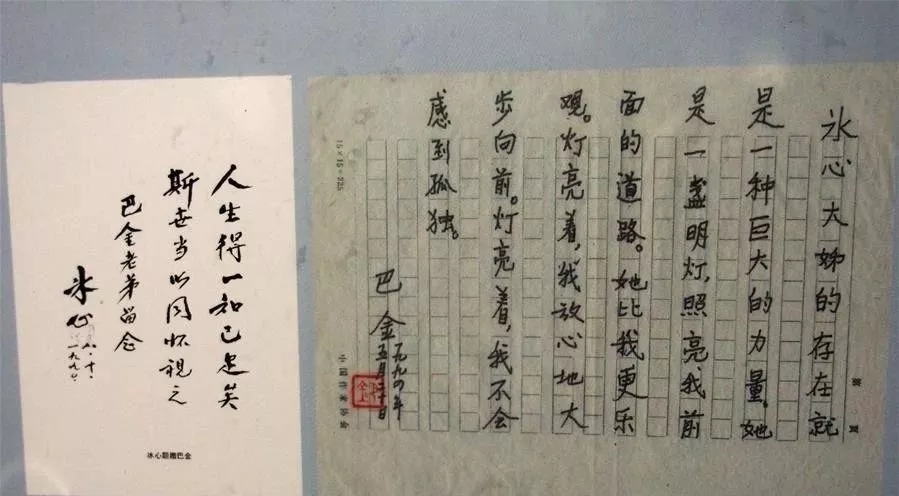 冰心大姊的存在就
是一种巨大的力量。她
是一盏明灯，照亮我前
面的道路。她比我更乐
观。灯亮着，我放心地大
步向前。灯亮着，我不会
感到孤独。
巴金
一九九四年
五月二十日
15×15=225
中国作家协会
人生得一知己足矣
斯世当以同怀视之
巴金老弟留念
冰心
八.十.
冰心题赠巴金